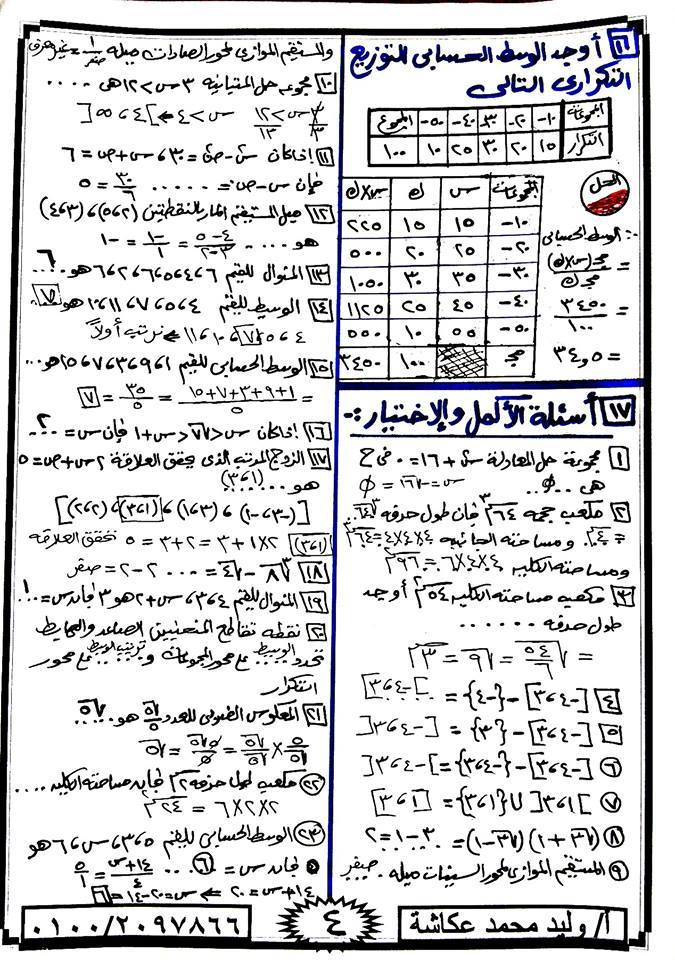 ١٦ أوجد الوسط الحسابى للتوزيع
التكرارى التالى
المجموعات ١٠- ٢٠- ٣٠- ٤٠- ٥٠- المجموع
التكرار ١٥ ٢٠ ٣٠ ٢٥ ١٠ ١٠٠
الحل
المجموعات س ك س×ك
١٠- ١٥ ١٥ ٢٢٥
٢٠- ٢٥ ٢٠ ٥٠٠
٣٠- ٣٥ ٣٠ ١٠٥٠
٤٠- ٤٥ ٢٥ ١١٢٥
٥٠- ٥٥ ١٠ ٥٥٠
مجـ ١٠٠ ٣٤٥٠
∴ الوسط الحسابى
= مجـ(س×ك) / مجـ ك
= ٣٤٥٠ / ١٠٠
= ٣٤,٥
١٧ أسئلة الأكمل والإختيار :-
١ مجموعة حل المعادلة س² + ١٦ = ٠ فى ح
هى ..∅.. س = √-١٦ = ∅
٢ مكعب حجمه ٦٤ سم³ فإن طول حرفه ∛٦٤
= ٤سم ومساحته الجانبيه ٤×٤×٤ = ٦٤سم²
ومساحته الكليه ٤×٤×٦ = ٩٦سم²
٣ مكعب مساحته الكليه ٥٤سم² أوجد
طول حرفه ......
= √٥٤/٦ = √٩ = ٣سم
٤ [-٣،٤] - {-٤} =
٥ [-٣،٤] - {٣} =
٦ [-٣،٤] - {-٣،٤} =
٧ ]٣،١[ ∪ {٣،١} = [٣،١]
٨ (√٣ + ١)(√٣ - ١) = ٣ - ١ = ٢
٩ المستقيم الموازى لمحور السينات ميله .صفر
والمستقيم الموازى لمحور الصادات ميله ١/صفر = غير معرف
١٠ مجموعه حل المتباينه ٣س > ١٢ هى ....
٣س/٣ > ١٢/٣ س > ٤ ⇐ ]٤،∞[
١١ إذا كان س² - ص² = ٣٠ ، س + ص = ٦
فإن س - ص = ..... = ٣٠/٦ = ٥
١٢ ميل المستقيم المار بالنقطتين (٢،٥) ، (٣،٤)
هو .... = ٤-٥/٣-٢ = -١/١ = -١
١٣ المنوال للقيم ٦،٤،٥،٦،٢،٦ هو .٦.
١٤ الوسيط للقيم ٤،٥،٧،١١،١٠ هو ٧
٤،٥،٧،١٠،١١ ⇐ نرتب أولاً
١٥ الوسط الحسابى للقيم ١،٩،٣،٧،١٥ هو...
= ١+٩+٣+٧+١٥/٥ = ٣٥/٥ = ٧
١٦ إذا كان س < √٧ < س + ١ فإن س = ..٢..
١٧ الزوج المرتب الذى يحقق العلاقة ٢س + ص = ٥
هو ...(١،٣)...
[(-١،٣) ، (١،٣) ، (٣،١) ، (٢،٢)]
(١،٣) ٢×١ + ٣ = ٢ + ٣ = ٥ تحقق العلاقه
١٨ ∛٨ - √٤ = .... ٢ - ٢ = صفر
١٩ المنوال للقيم ٤،٣،٤،س+٢ هو ٣ فإن س = .١.
٢٠ نقطه تقاطع المنحنيين الصاعد والهابط
تحدد .الوسيط. على محور المجموعات و .ترتيب الوسيط. على محور
التكرار
٢١ المعكوس الضربى للعدد √٥/٥ هو ..√٥..
٥/√٥ × √٥/√٥ = ٥√٥/٥ = √٥
٢٢ مكعب طول حرفه ٢سم فإن مساحته الكليه ....
٢×٢×٦ = ٢٤سم²
٢٣ الوسط الحسابى للقيم ٥،٣،س،٦ هو
٥ فإن س = ..٦.. = ١٤+س/٤ = ٥/١
١٤+س = ٢٠ ⇐ س = ٢٠-١٤ = ٦
أ/ وليد محمد عكاشة
٤
٠١٠٠/٢٠٩٧٨٦٦